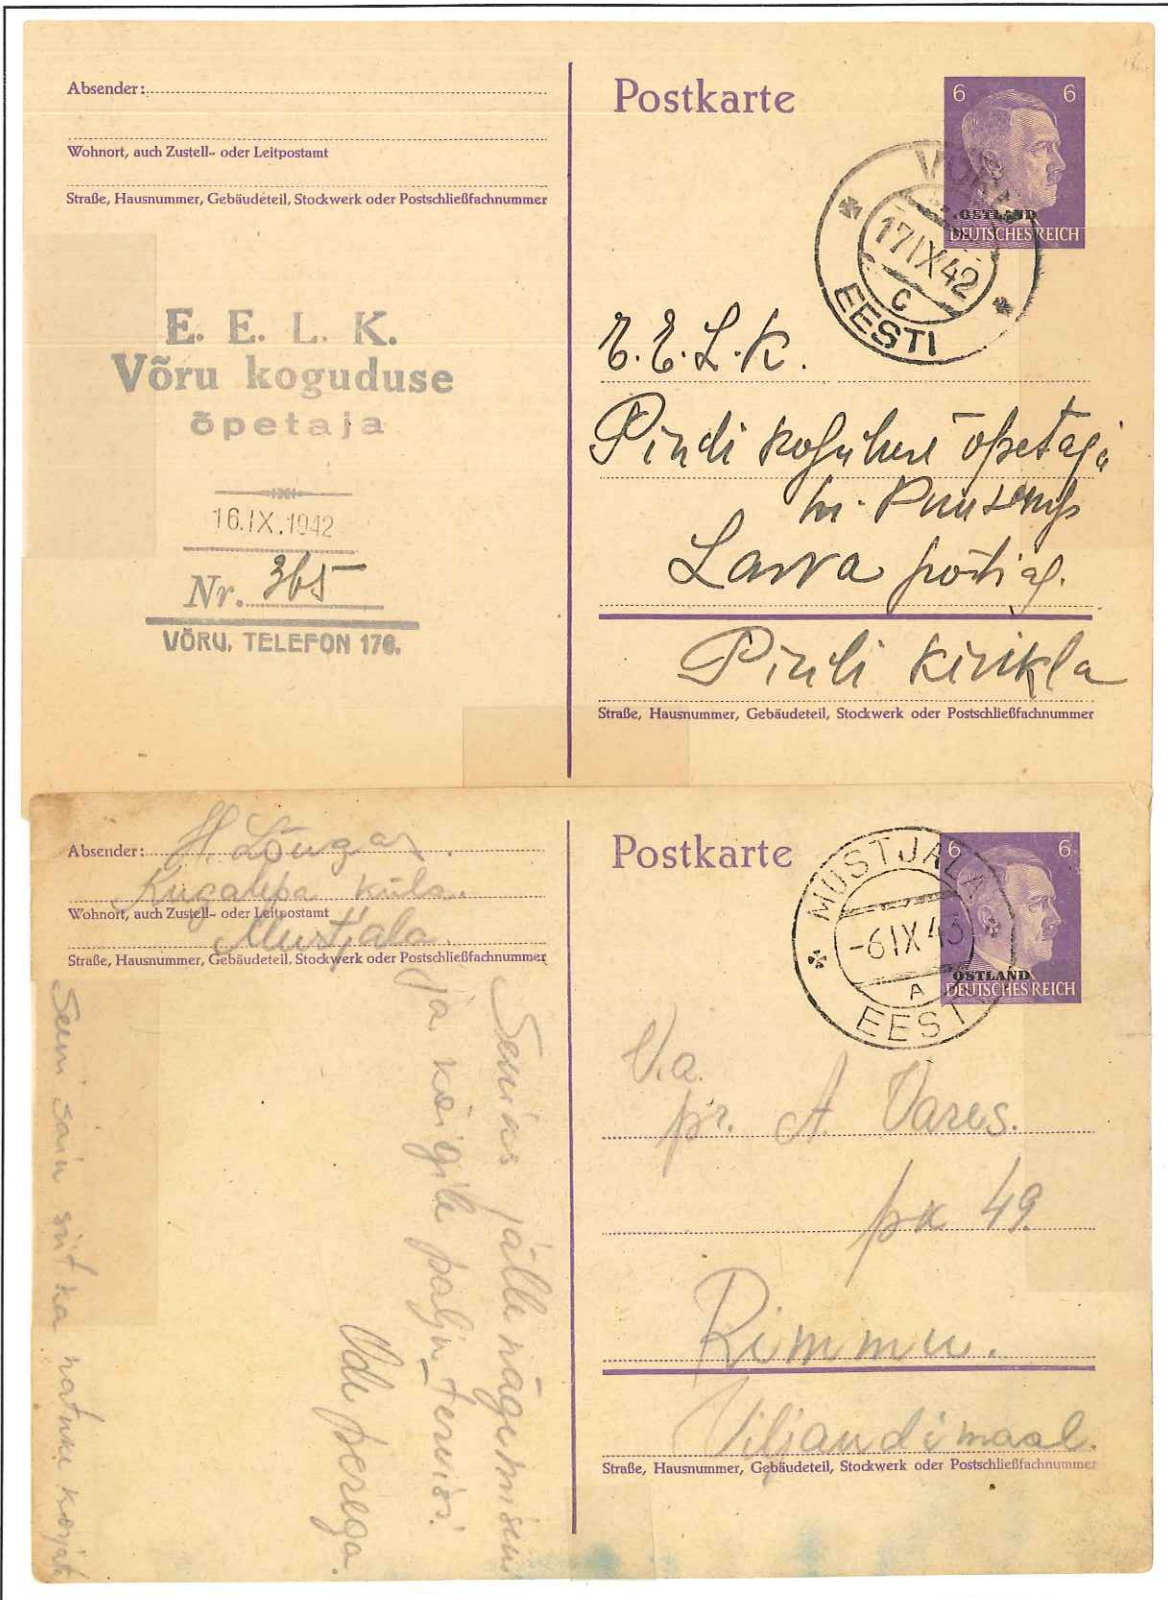 Absender:
Wohnort, auch Zustell- oder Leitpostamt
Straße, Hausnummer, Gebäudeteil, Stockwerk oder Postschließfachnummer
E. E. L. K.
Võru koguduse
õpetaja
16.IX.1942
Nr. 365
VÕRU, TELEFON 170.
Postkarte
6 6
OSTLAND
DEUTSCHES REICH
17 IX 42
C
EESTI
E.E.L.K.
Pindi koguduse õpetaja
hr.
Pindi kirikla
Straße, Hausnummer, Gebäudeteil, Stockwerk oder Postschließfachnummer
Absender: H. Lõugas.
küla.
Wohnort, auch Zustell- oder Leitpostamt
Mustjala
Straße, Hausnummer, Gebäudeteil, Stockwerk oder Postschließfachnummer
Seni sain siit ka natuke
Senikas jälle nägemiseni
ja kõigile palju tervisi.
perega.
Postkarte
6 6
OSTLAND
DEUTSCHES REICH
MUSTJALA
-6 IX 43
A
EESTI
V.a.
pr. A. Vares.
pk 49.
Rimmu.
Viljandimaal.
Straße, Hausnummer, Gebäudeteil, Stockwerk oder Postschließfachnummer